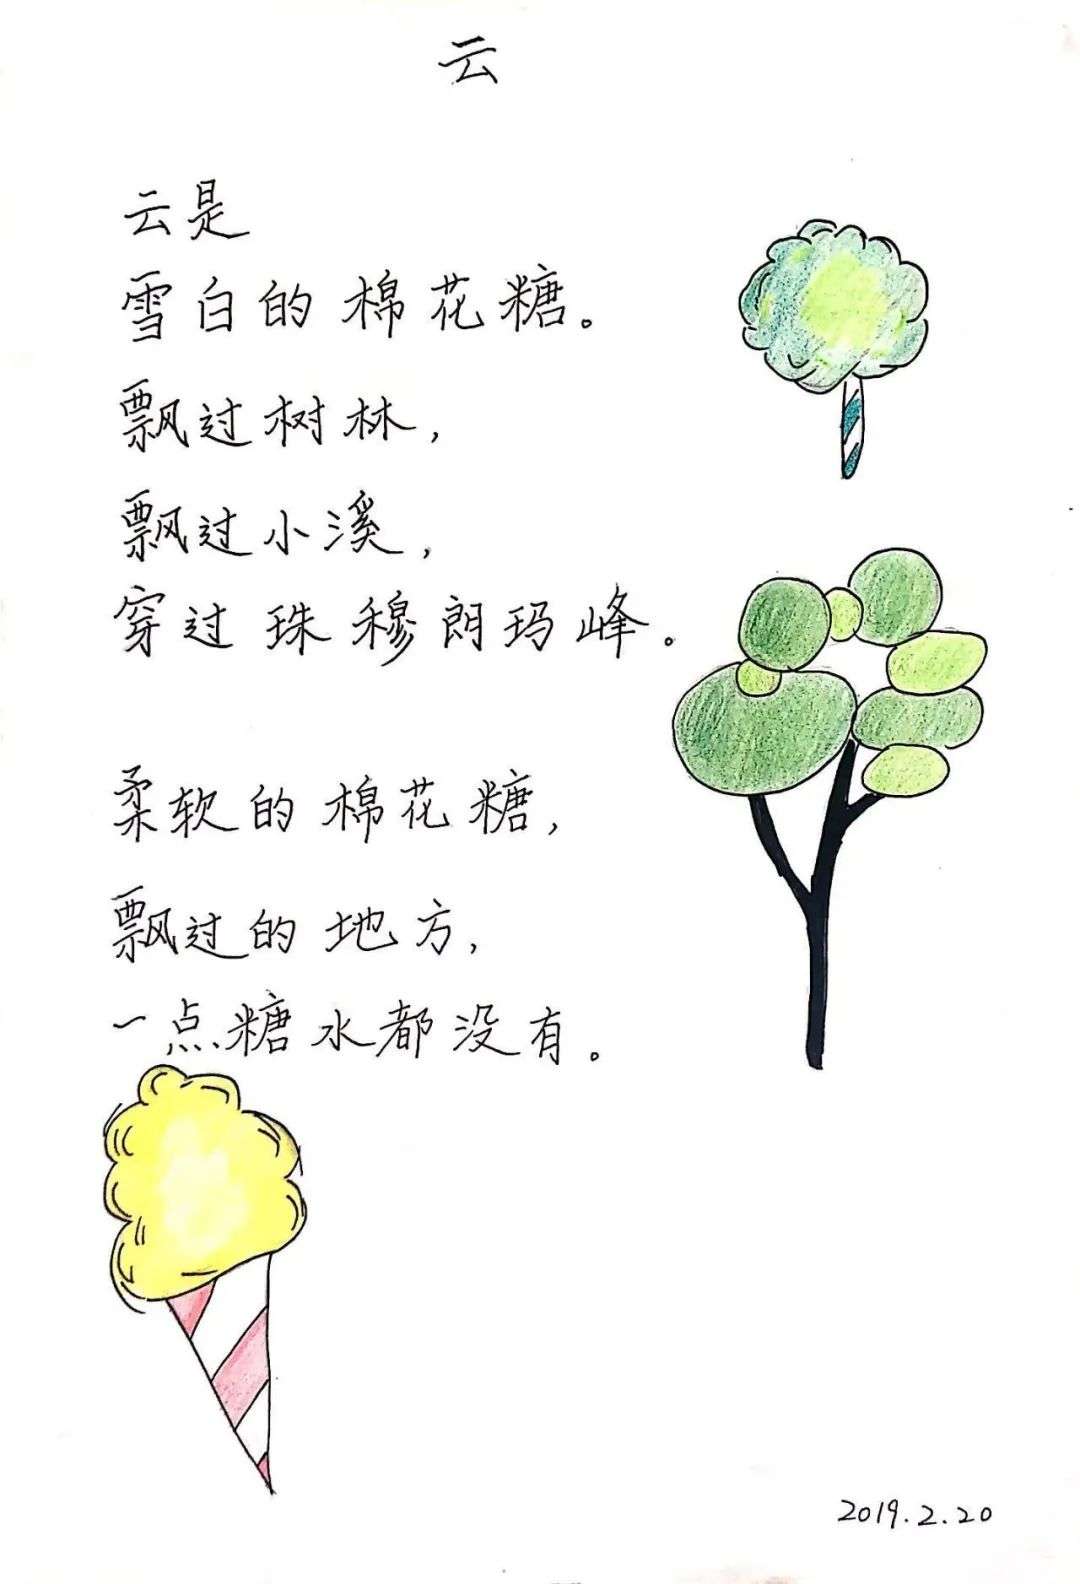 云
云是
雪白的棉花糖。
飘过树林,
飘过小溪,
穿过珠穆朗玛峰。
柔软的棉花糖,
飘过的地方,
一点糖水都没有。
2019.2.20